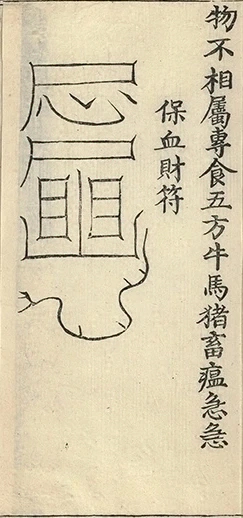 物不相屬專食五方牛馬猪畜瘟急急
保血財符